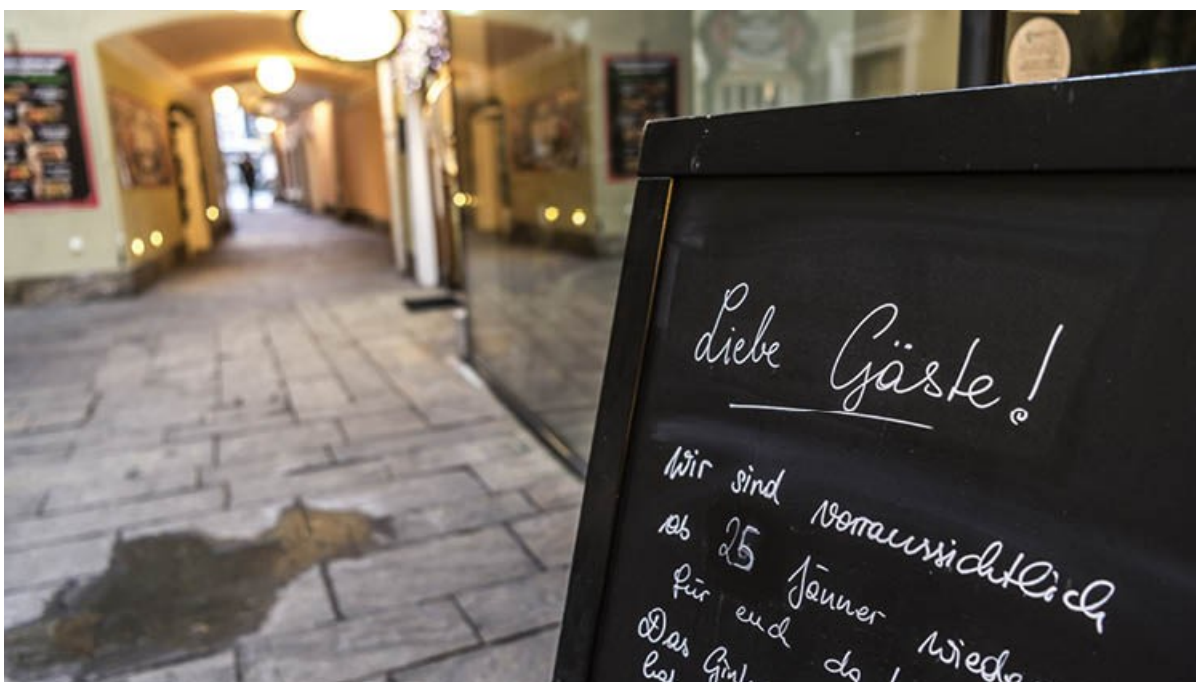 Liebe Gäste!
Wir sind vorraussichtlich
ab 25 Jänner wiede
für euch da
Das